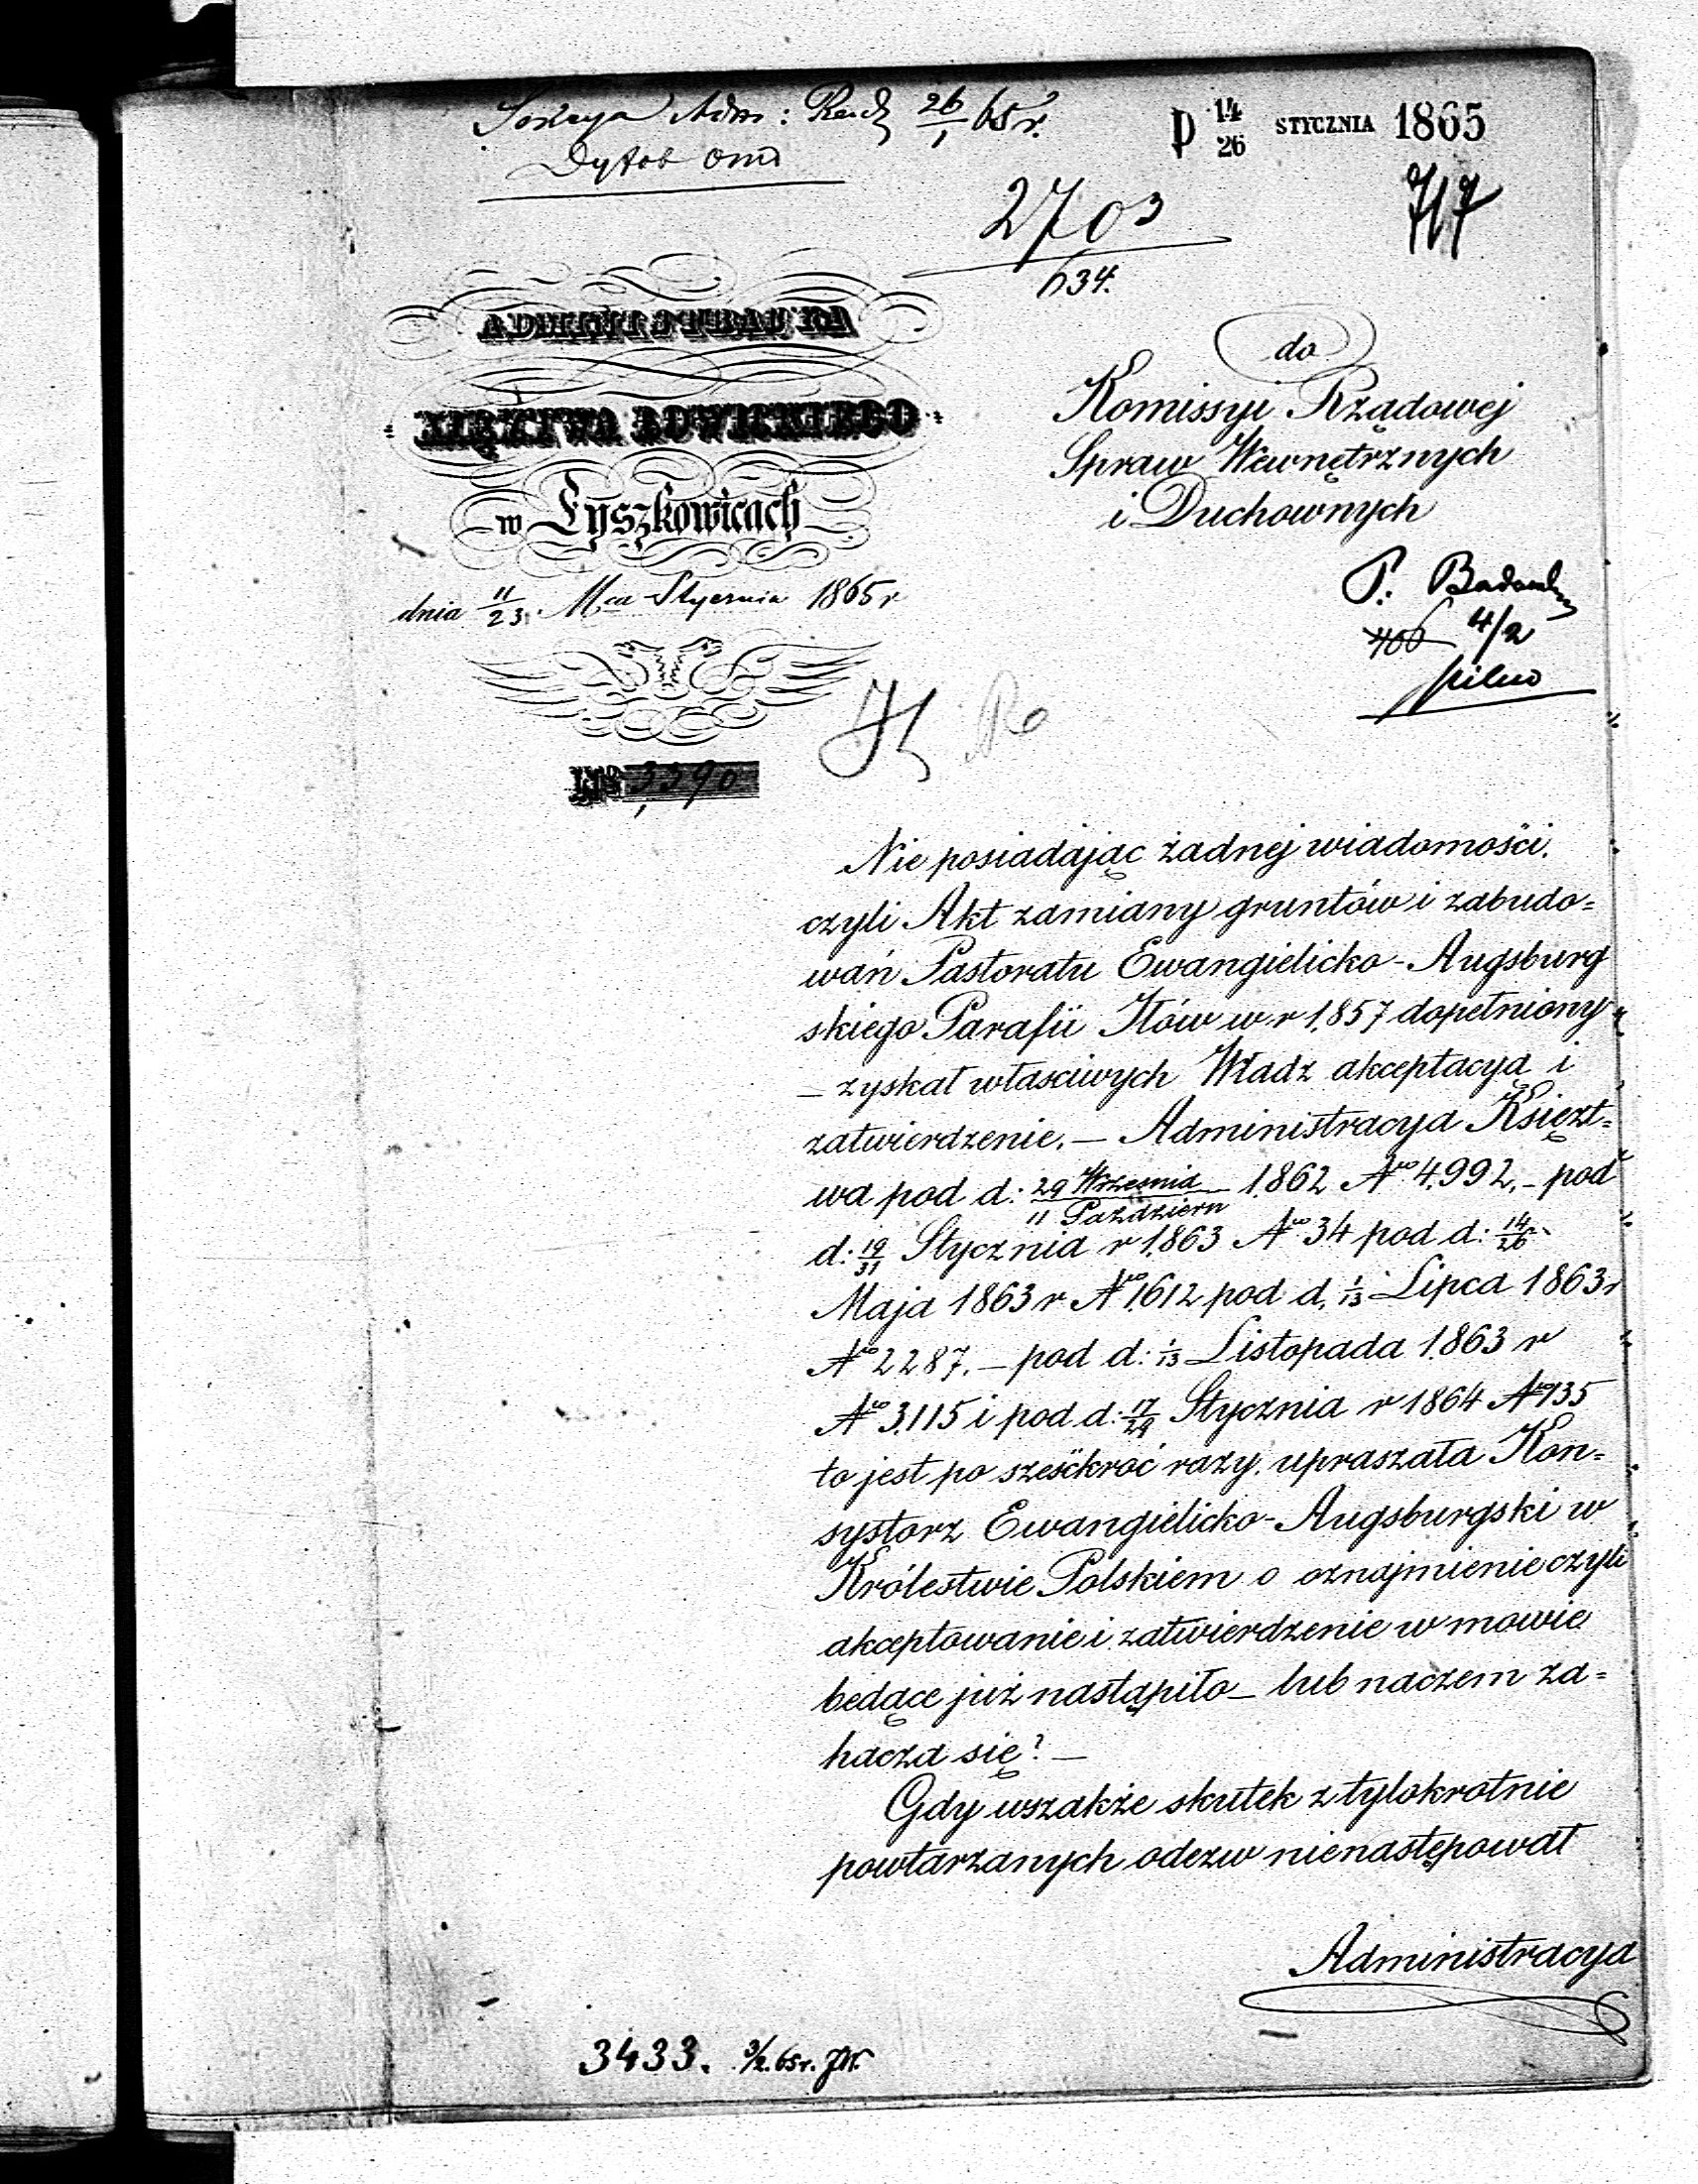 26/1 65 r.
P 14/26 STYCZNIA 1865
717
2703
634.
ADMINISTRACYA
XIĘZTWA ŁOWICKIEGO
w Łyszkowicach
dnia 11/23 Mca Stycznia 1865 r
№ 3390
do
Komissyi Rządowej
Spraw Wewnętrznych
i Duchownych
P.
4/2
pilno
Nie posiadając żadnej wiadomości,
czyli Akt zamiany gruntów i zabudo=
wań Pastoratu Ewangielicko-Augsburg
skiego Parafii Iłów w r 1857 dopełniony
– zyskał własciwych Władz akceptacyą i
zatwierdzenie. – Administracya Księzt=
wa pod d: 29 Września / 11 Październ 1862 No 4992, – pod
d: 19/31 Stycznia r 1863 No 34 pod d: 14/26
Maja 1863 r No 1612 pod d, 1/13 Lipca 1863 r
No 2287. – pod d: 1/13 Listopada 1863 r
No 3115 i pod d: 17/29 Stycznia r 1864 No 135
to jest po sześćkroć razy, upraszała Kon=
systorz Ewangielicko-Augsburgski w
Królestwie Polskiem o oznajmienie czyli
akceptowanie i zatwierdzenie w mowie
będące już nastąpiło – lub naczem za=
hacza się? –
Gdy wszakże skutek z tylokrotnie
powtarzanych odezw nienastępował
Administracya
3433. 3/2. 65 r.